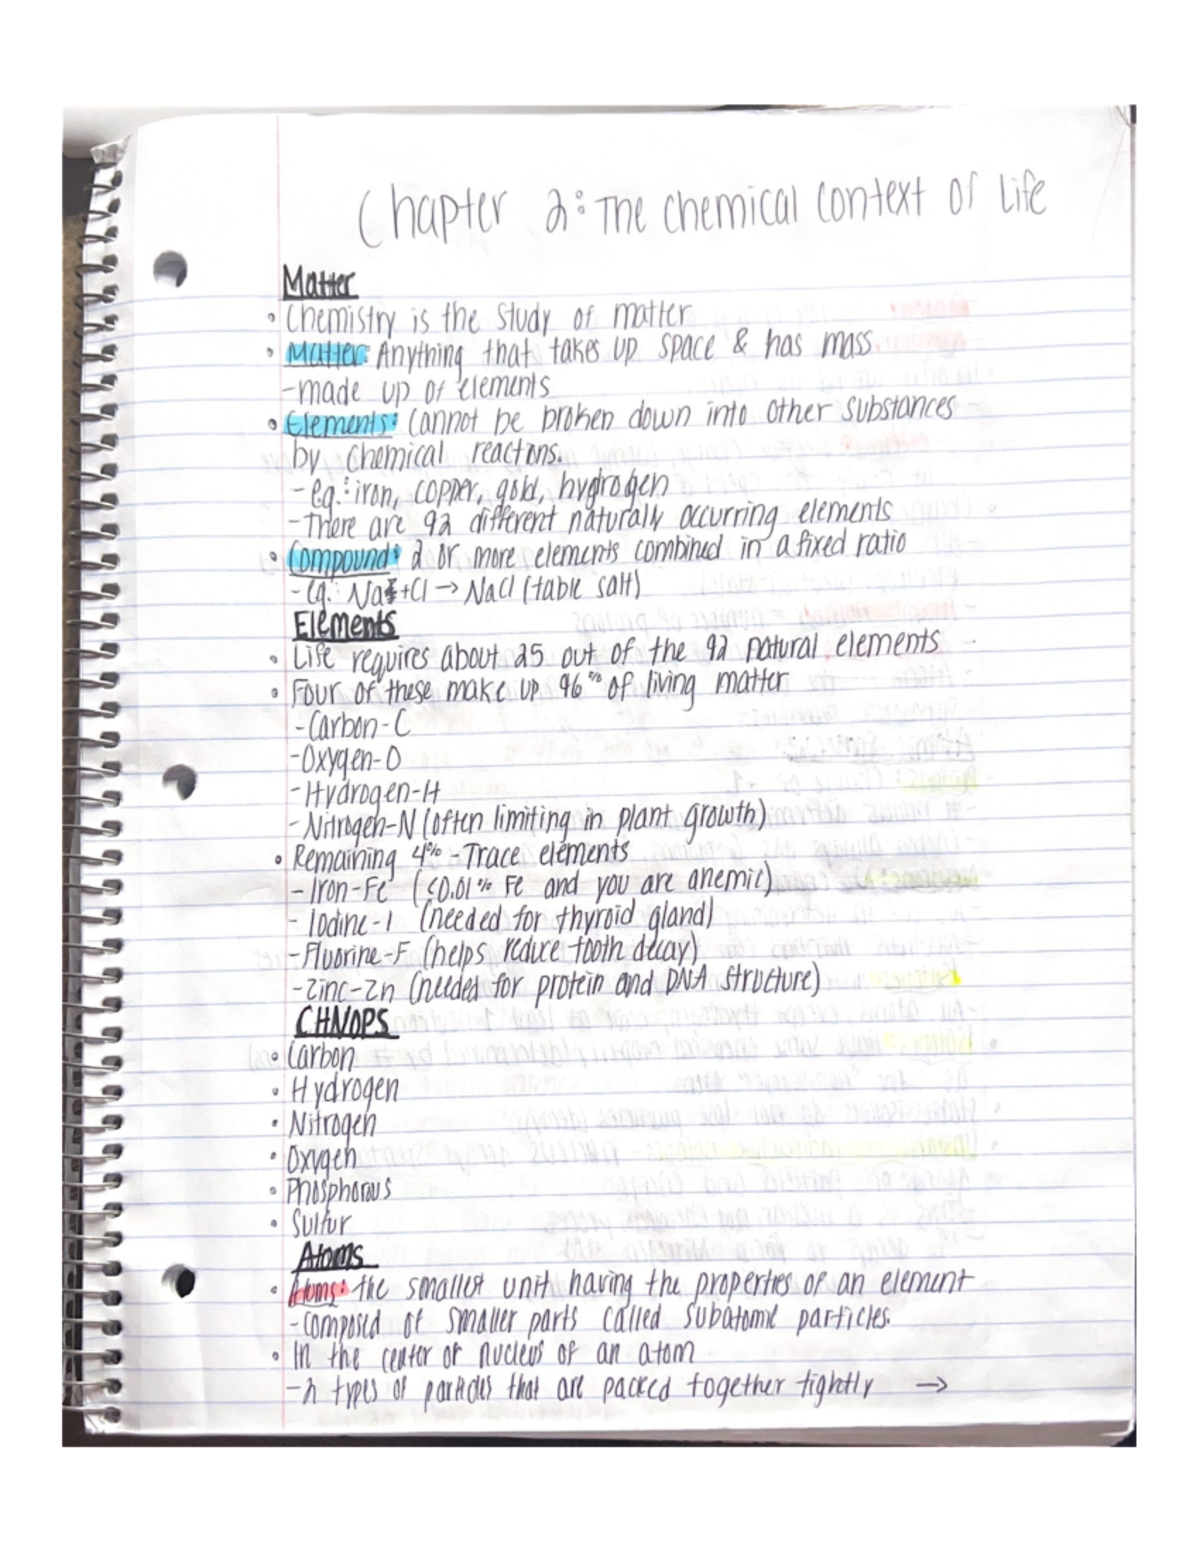 Chapter 2: The Chemical Context of Life
Matter
• Chemistry is the study of matter
• Matter: Anything that takes up space & has mass
-made up of elements
• Elements: Cannot be broken down into other substances
by chemical reactons.
-eg.: iron, copper, gold, hydrogen
-There are 92 different naturally occurring elements
• Compound: 2 or more elements combined in a fixed ratio
-Eg.: Na + Cl → NaCl (table salt)
Elements
• Life requires about 25 out of the 92 natural elements
• Four of these make up 96% of living matter
-Carbon-C
-Oxygen-O
-Hydrogen-H
-Nitrogen-N (often limiting in plant growth)
• Remaining 4% -Trace elements
-Iron-Fe (<0.01% Fe and you are anemic)
-Iodine-I (needed for thyroid gland)
-Fluorine-F (helps reduce tooth decay)
-Zinc-Zn (needed for protein and DNA structure)
CHNOPS
• Carbon
• Hydrogen
• Nitrogen
• Oxygen
• Phosphorous
• Sulfur
Atoms
• Atoms: the smallest unit having the properties of an element
-composed of smaller parts called subatomic particles.
• In the center or nucleus of an atom
-2 types of particles that are packed together tightly →